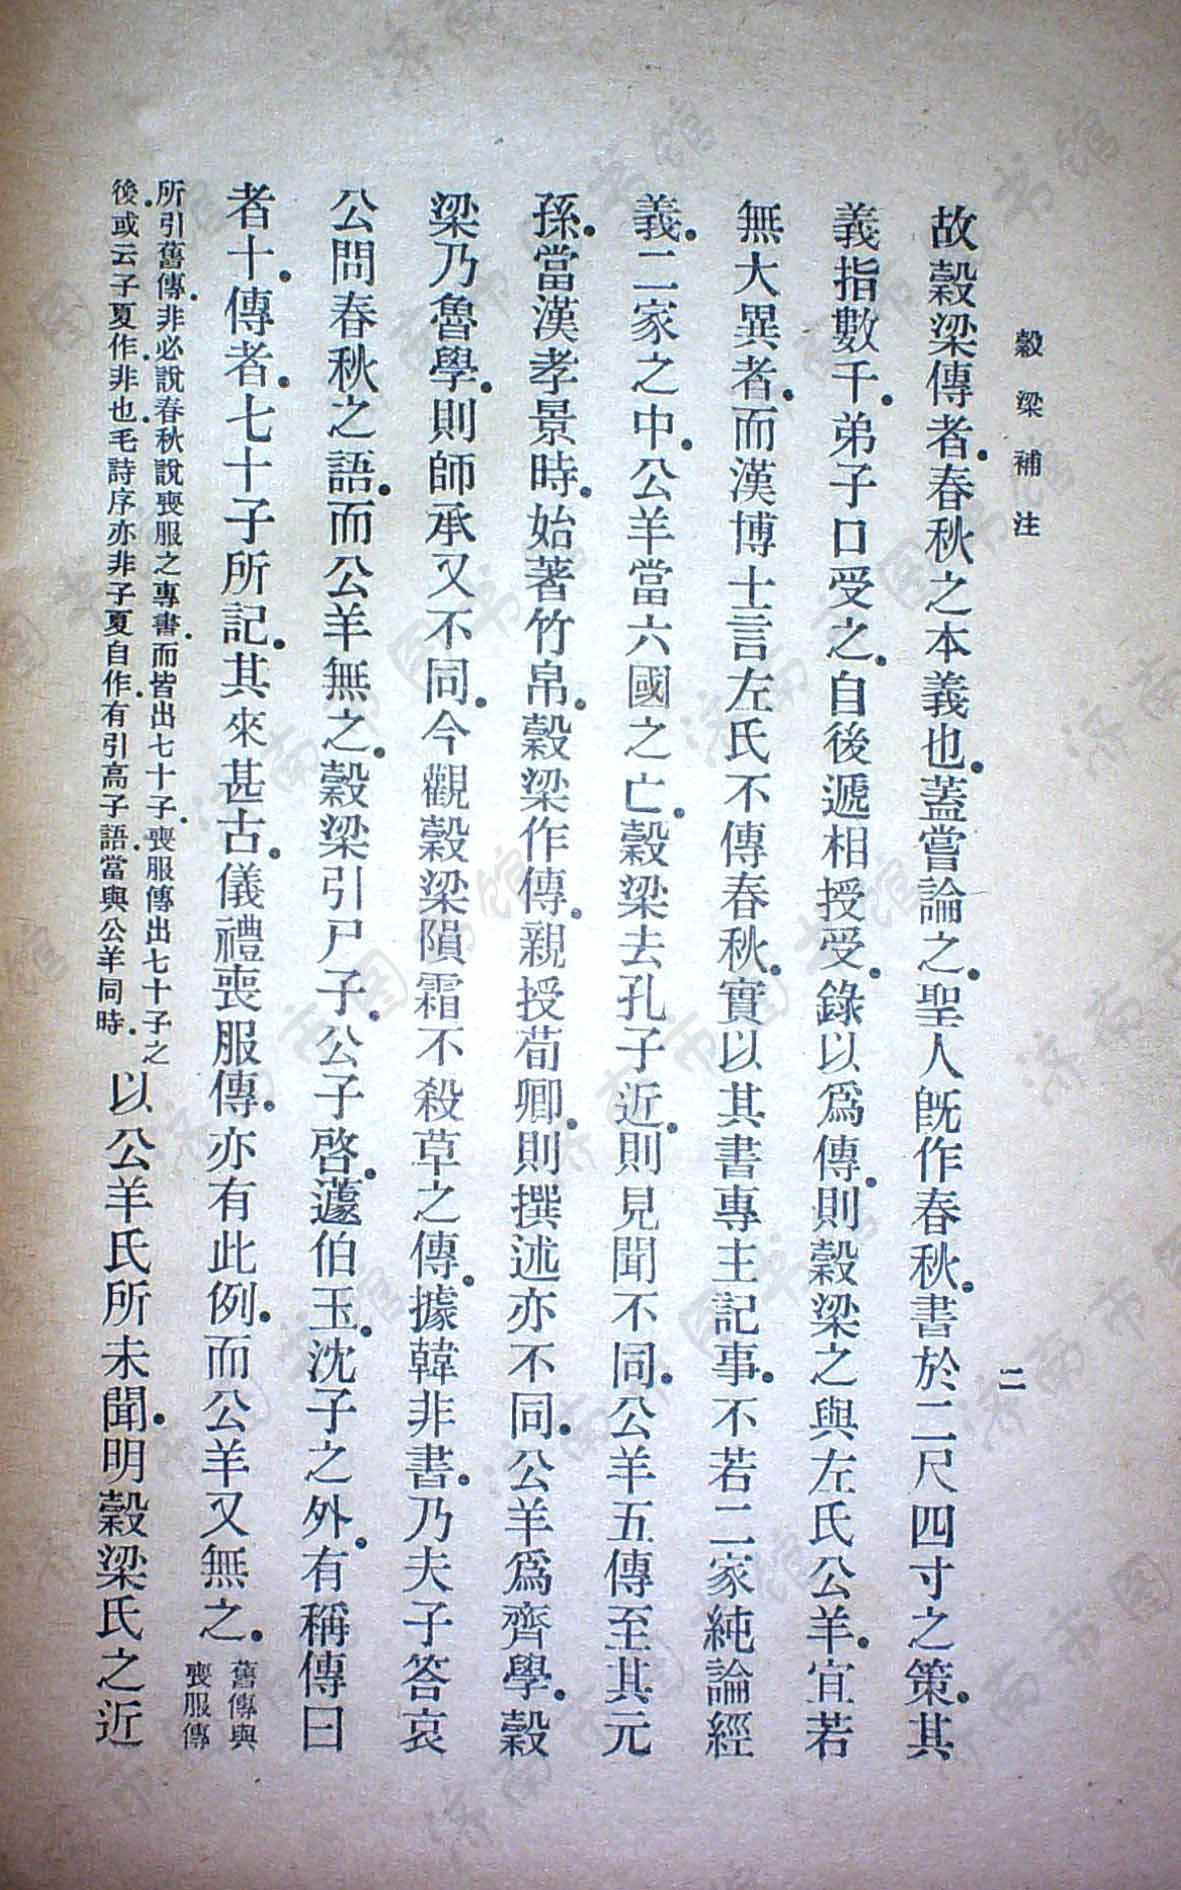 穀梁補注
二
故穀梁傳者。春秋之本義也。蓋嘗論之。聖人旣作春秋。書於二尺四寸之策。其
義指數千。弟子口受之。自後遞相授受。錄以爲傳。則穀梁之與左氏公羊。宜若
無大異者。而漢博士言左氏不傳春秋。實以其書專主記事。不若二家純論經
義。二家之中。公羊當六國之亡。穀梁去孔子近。則見聞不同。公羊五傳至其元
孫。當漢孝景時。始著竹帛。穀梁作傳。親授荀卿。則撰述亦不同。公羊爲齊學。穀
梁乃魯學。則師承又不同。今觀穀梁隕霜不殺草之傳。據韓非書。乃夫子答哀
公問春秋之語。而公羊無之。穀梁引尸子。公子啓。蘧伯玉。沈子之外。有稱傳曰
者十。傳者。七十子所記。其來甚古。儀禮喪服傳。亦有此例。而公羊又無之。舊傳與
喪服傳
所引舊傳。非必說春秋說喪服之專書。而皆出七十子。喪服傳出七十子之
後。或云子夏作。非也。毛詩序亦非子夏自作。有引高子語。當與公羊同時。
以公羊氏所未聞。明穀梁氏之近